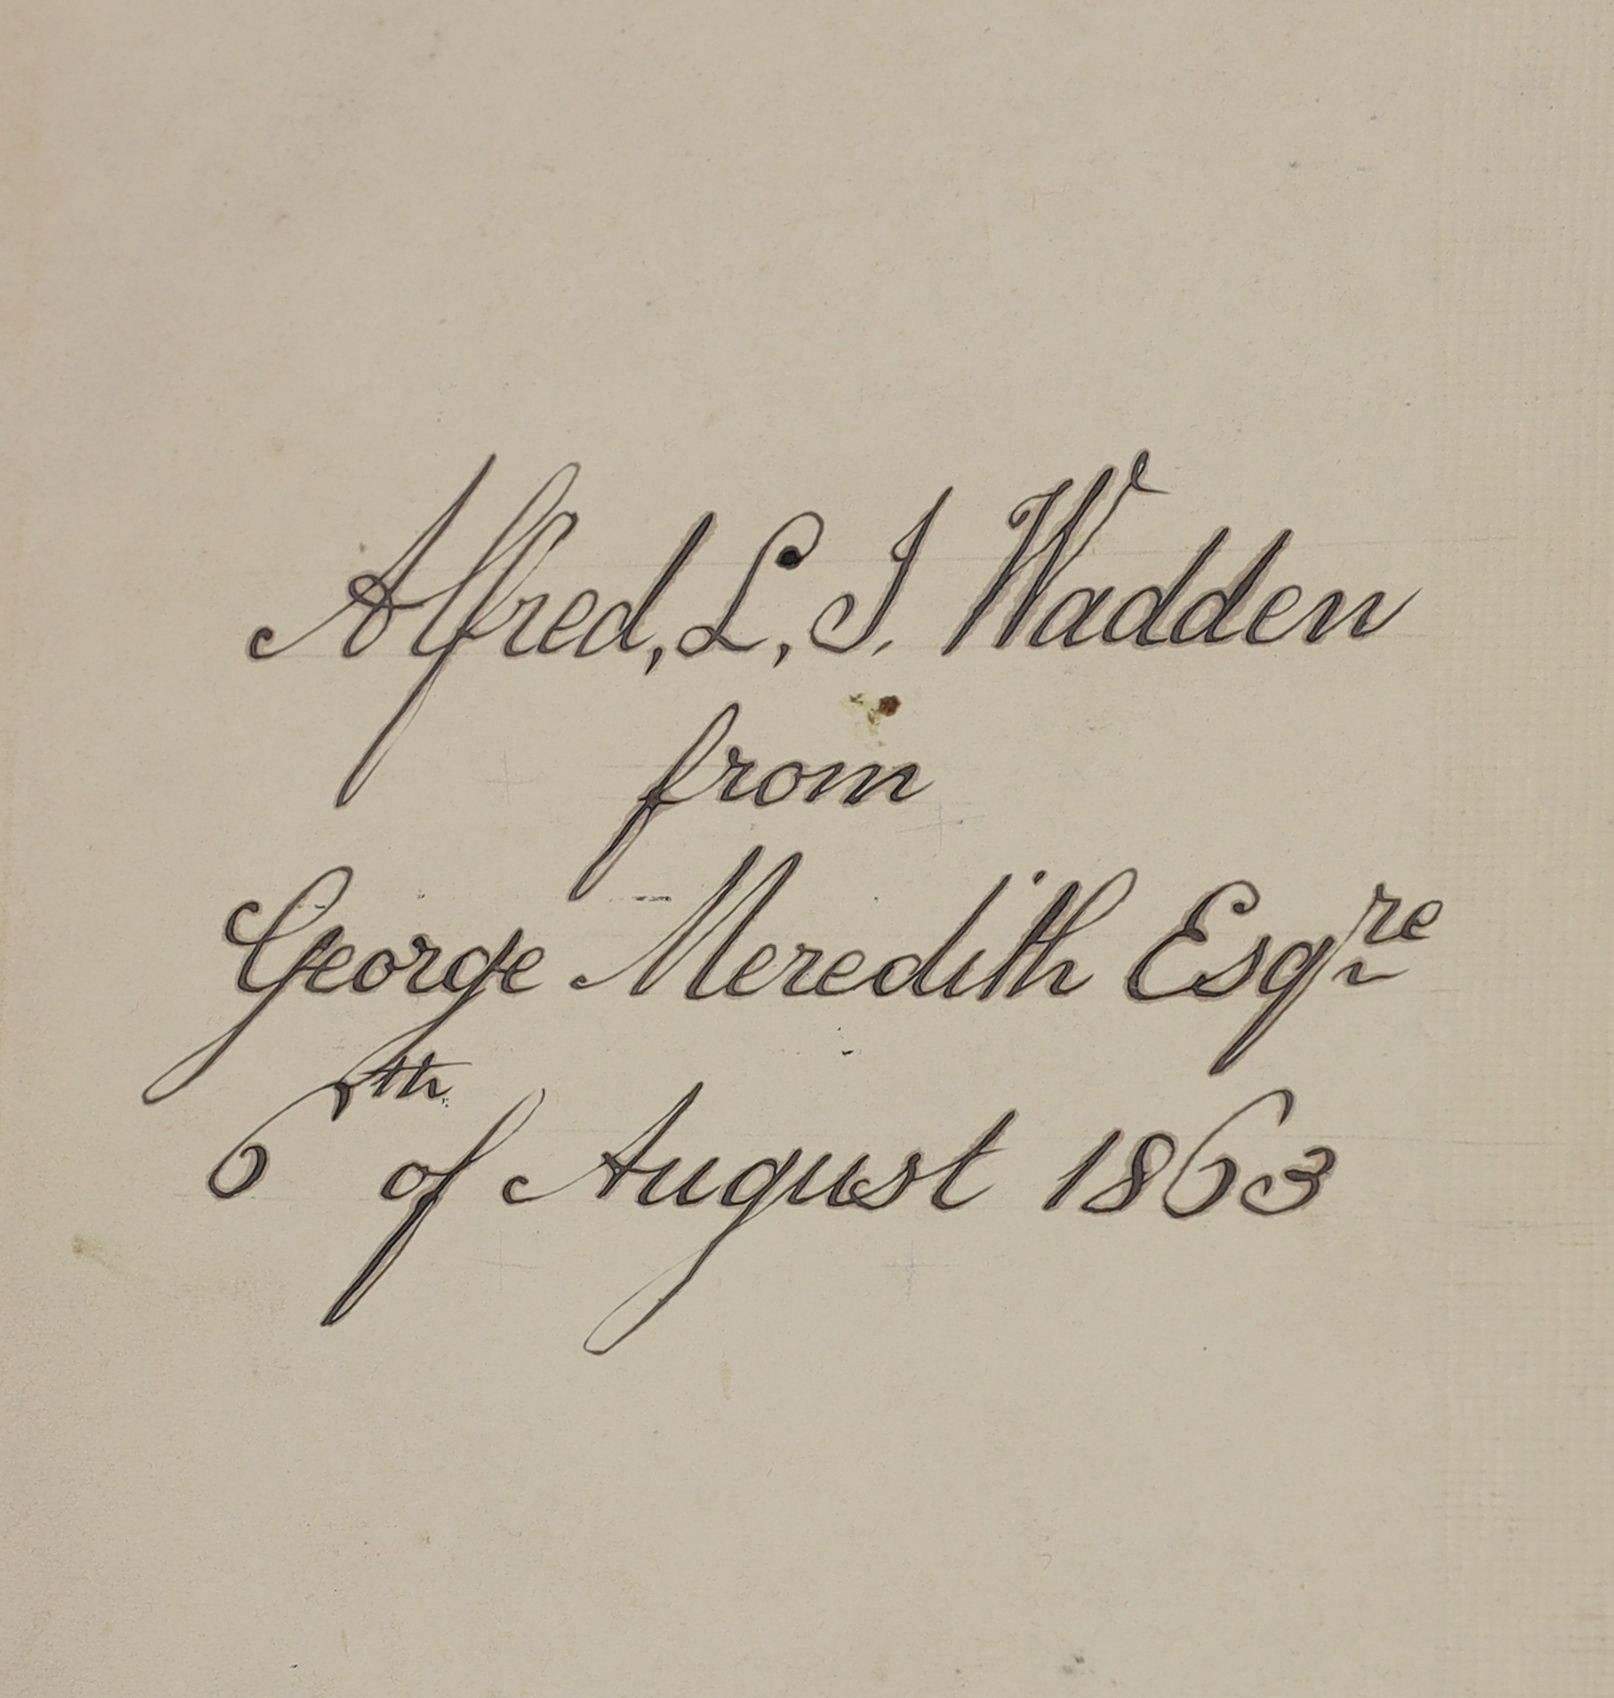 Alfred, L, J, Wadden
from
George Meredith Esqre
6th of August 1863